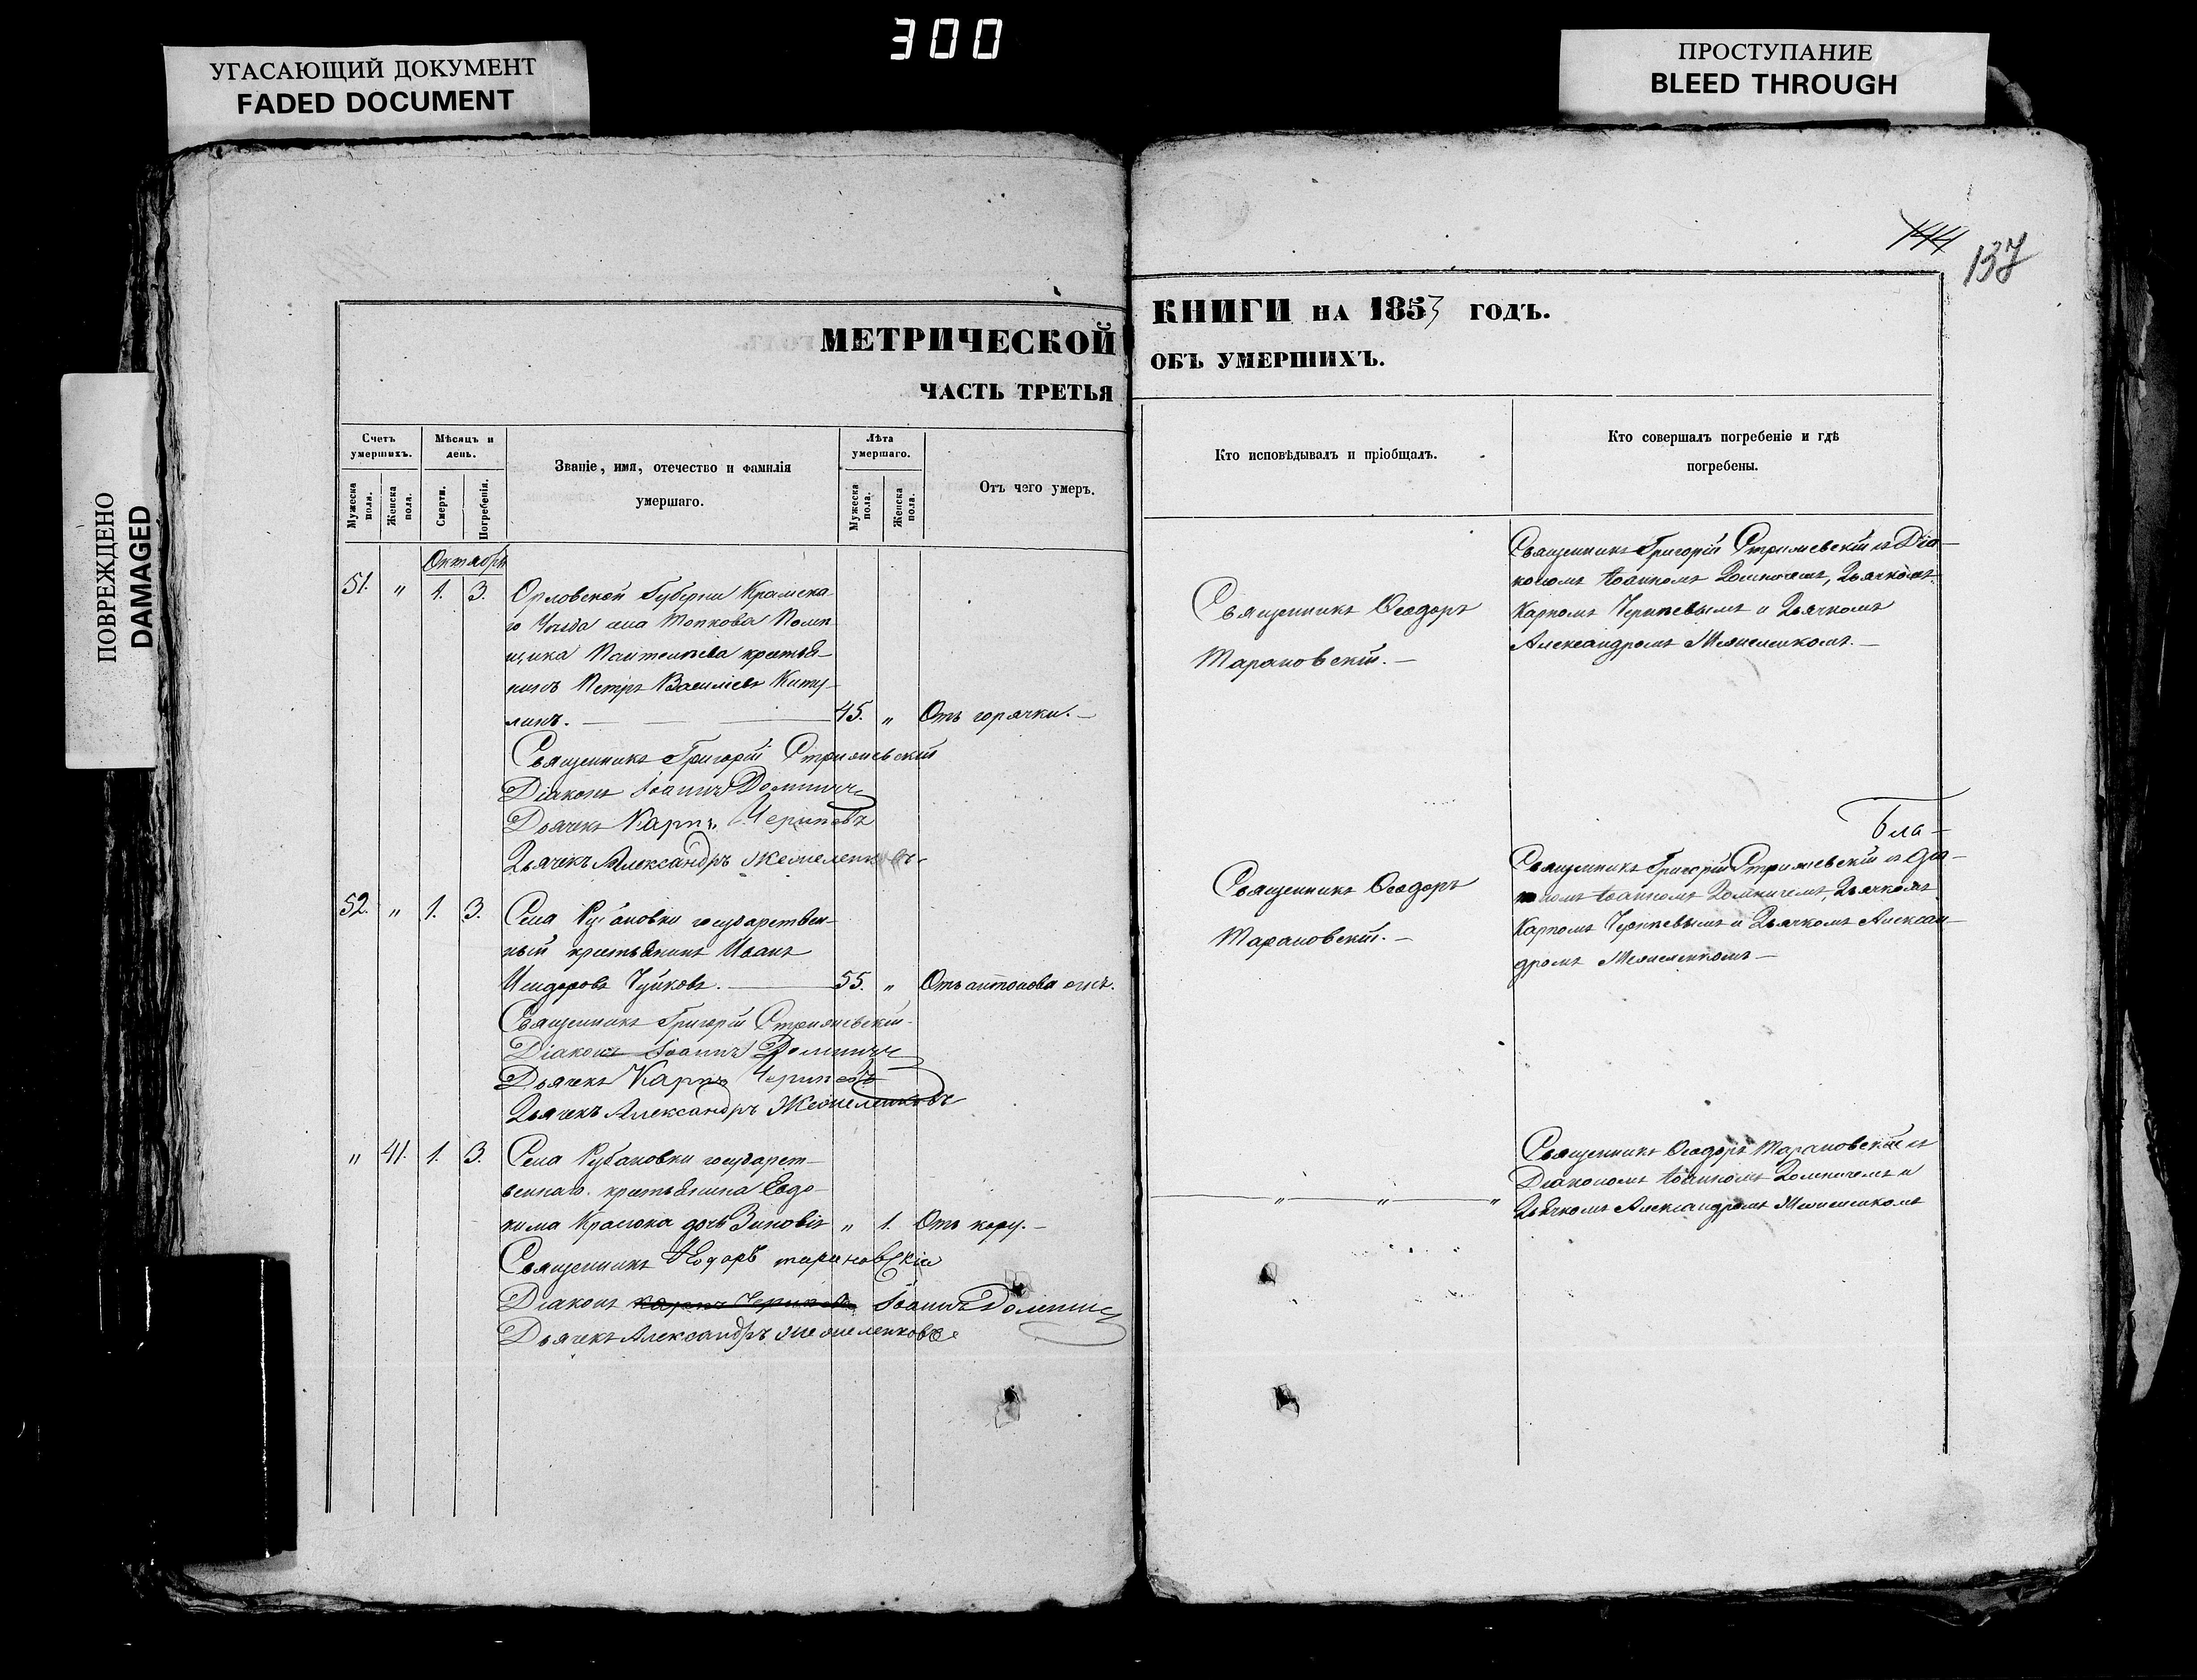 300
УГАСАЮЩИЙ ДОКУМЕНТ
FADED DOCUMENT
ПРОСТУПАНИЕ
BLEED THROUGH
ПОВРЕЖДЕНО
DAMAGED
144
137
МЕТРИЧЕСКОЙ
ЧАСТЬ ТРЕТЬЯ
Счетъ умершихъ.
Мужеска пола.
Женска пола.
Мѣсяцъ и день.
Смерти.
Погребенія.
Званіе, имя, отечество и фамилія
умершаго.
Лѣта умершаго.
Мужеска пола.
Женска пола.
Отъ чего умеръ.
Октябрь
51. " 1. 3. Орловской Губерніи Крамска-
го Уѣзда села Топкова Помѣ-
щика крестья-
нинъ Петръ Василіевъ Киту-
линъ. — 45. " Отъ горячки. —
Священникъ Григорій Стрижевскій
Діаконъ Іоаннъ Доминичъ
Дьячекъ Карпъ Черипевъ
Дьячекъ Александръ
52. " 1. 3. Села Рубановки государствен-
ный крестьянинъ Иванъ
Исидоровъ Чуйковъ. — 55. " Отъ антонова огня.
Священникъ Григорій Стрижевскій
Діаконъ Іоаннъ Доминичъ
Дьячекъ Карпъ Черипевъ
Дьячекъ Александръ
" 41. 1. 3. Села Рубановки государст-
веннаго крестьянина Евдо-
кима дочь Зиновія " 1. Отъ кору. —
Священникъ Ѳеодоръ Тарановскій
Діаконъ Іоаннъ Доминичъ
Дьячекъ Александръ
КНИГИ НА 1853 ГОДЪ.
ОБЪ УМЕРШИХЪ.
Кто исповѣдывалъ и пріобщалъ.
Кто совершалъ погребеніе и гдѣ
погребены.
Священникъ Ѳеодоръ
Тарановскій. —
Священникъ Григорій Стрижевскій съ Діа-
кономъ Іоанномъ Доминичемъ, Дьячкомъ
Карпомъ Черипевымъ и Дьячкомъ
Александромъ
Священникъ Ѳеодоръ
Тарановскій. —
Бла-
Священникъ Григорій Стрижевскій съ Діа-
кономъ Іоанномъ Доминичемъ, Дьячкомъ
Карпомъ Черипевымъ и Дьячкомъ Алексан-
дромъ
— " — " — "
Священникъ Ѳеодоръ Тарановскій съ
Діакономъ Іоанномъ Доминичемъ и
Дьячкомъ Александромъ